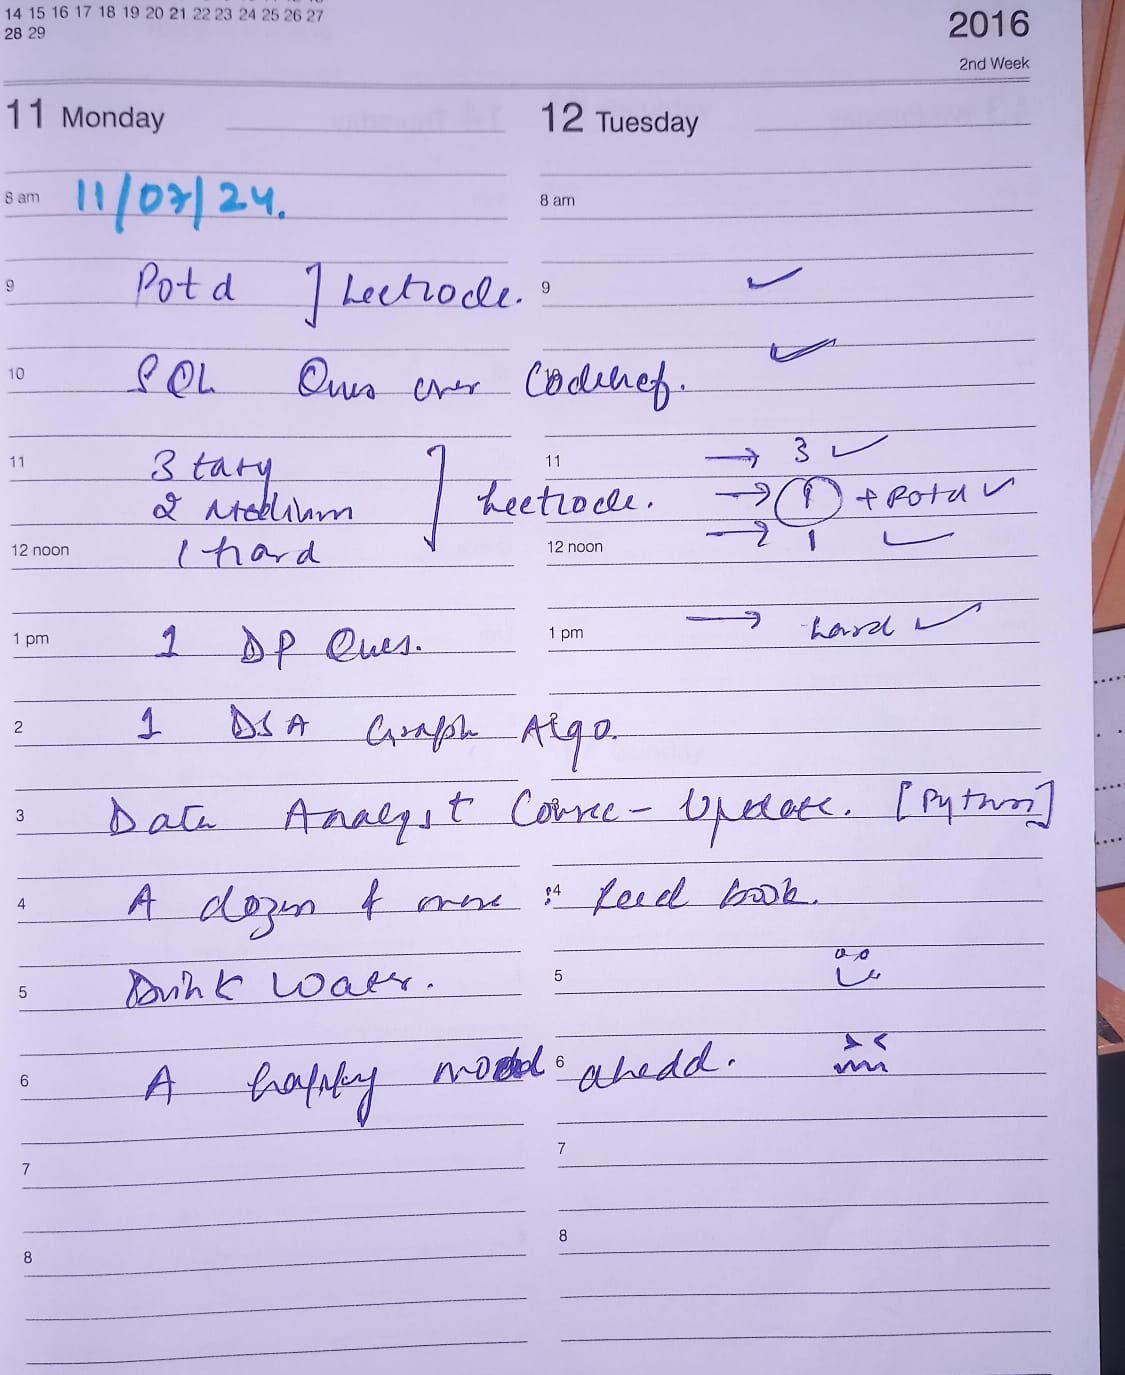 14 15 16 17 18 19 20 21 22 23 24 25 26 27
28 29
2016
2nd Week
11 Monday
12 Tuesday
8 am 11/07/24.
8 am
9 Potd ] Leetcode.
9 ✓
10 SQL Ques over Codechef. ✓
10
11 3 Easy
11 → 3 ✓
2 Medium ] Leetcode. → 1 + Potd ✓
12 noon 1 hard
12 noon → 1 ✓
1 pm 1 DP Ques.
1 pm → hard ✓
2 1 DSA Graph Algo.
3 Data Analyst Course - Update. [Python]
4 A dozen & more :4 Read book.
5 Drink Water.
5
6 A happy mood 6 ahedd.
7
7
8
8